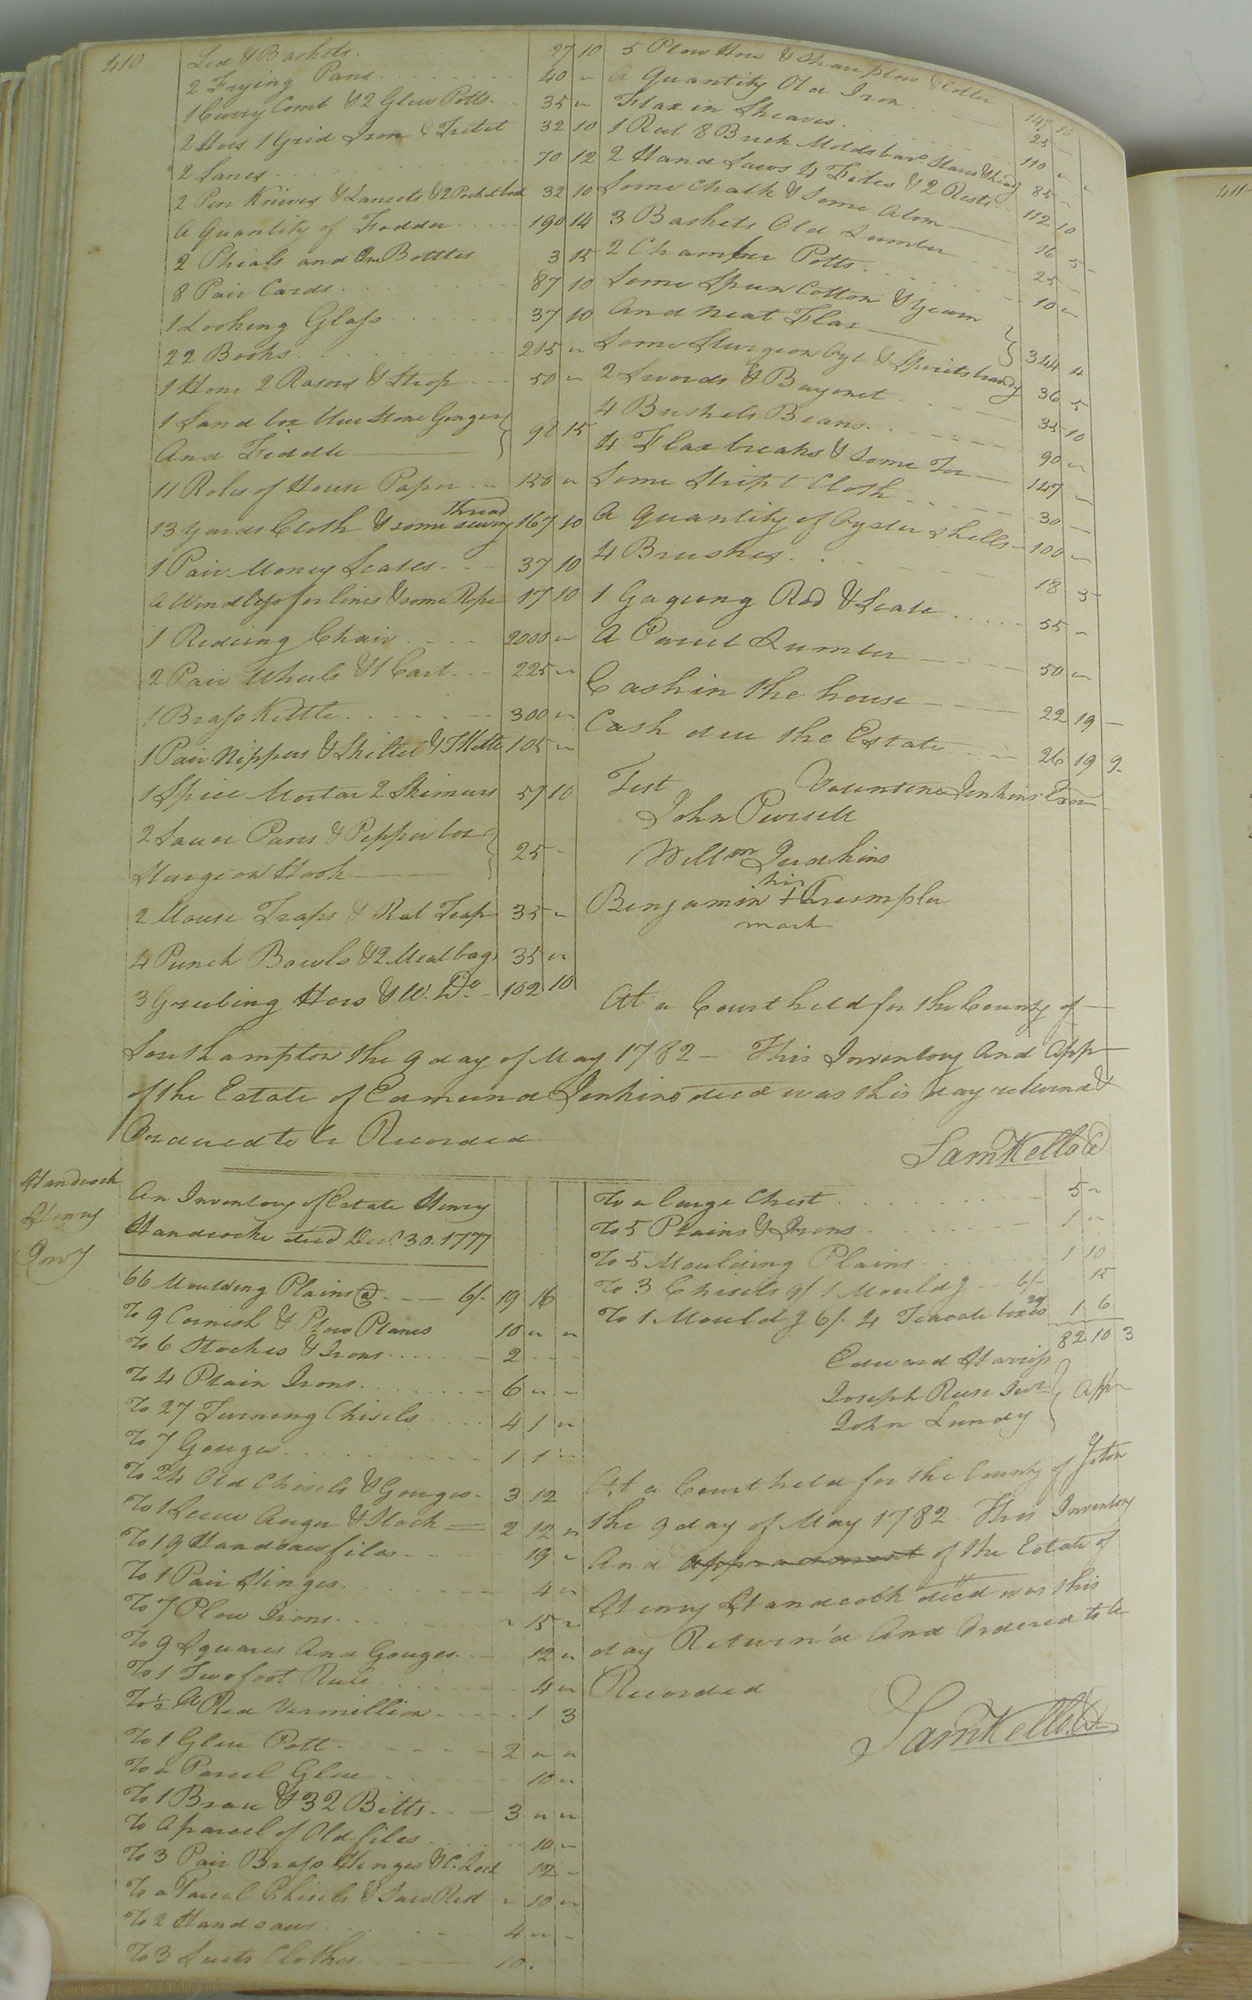 410
Led & Baskets 27 10
2 Frying Pans 40 "
1 Curry Comb & 2 Glew Potts 35 "
2 Hoes 1 Grid Iron & Trivet 32 10
2 Lanes 70 12
2 Pen Knives & Lancets & 2 Pocket 32 10
A Quantity of Fodder 190 14
2 Phials and One Bottles 3 15
8 Pair Cards 87 10
1 Looking Glass 37 10
22 Books 215 "
1 Hone 2 Rasors & Strop 50 "
1 Sand box Stone Ginger
And Fiddle 90 15
11 Roles of House Paper 150 "
13 Yards Cloth & some sewing Thread 167 10
1 Pair Money Scales 37 10
A for lines & some Rope 17 10
1 Rideing Chair 2000 "
2 Pair Wheels & 1 Cart 225 "
1 Brass Kettle 300 "
1 Pair Nippers & Skillet & Kettle 105 "
1 Spice Mortar 2 Skimers 57 10
2 Sauce Pans & Pepper box
Sturgeon Hook 25 -
2 Mouse Traps & Rat Trap 35 "
4 Punch Bowls & 2 Meal bags 35 "
3 Grubing Hoes & W. Do 102 10
5 Plow Hoes & & Colter 147 10
A Quantity Old Iron 25 -
Flax in Sheaves 110 "
1 Reel 8 Brick Molds bar 85 -
2 Hand Saws 4 Files & 2 Rests 112 10
Some Chalk & Some Alom 16 5 -
3 Baskets Old Lumber 25 -
2 Chamber Potts 10 "
Some Spun Cotton & Yearn
And neat Flax 344 4
Some Sturgeon Oyl & Spirits 36 5
2 Swords & Bayonet 35 10
4 Bushels Beans 90 "
4 Flax breaks & some Tow 147 -
Some Stript Cloth 30 -
A Quantity of Oyster Shells 100 "
4 Brushes 18 5
1 Gageing Rod & Scale 55 "
A Parcel Lumber 50 "
Cash in the house 22 19 -
Cash due the Estate 26 19 9
Test Valentine Jenkins Exor
John Pursell
Will'm Judkins
his
Benjamin + Crumpler
mark
At a Court held for the County of
Southampton the 9 day of May 1782 - This Inventory and App
of the Estate of Edmund Jenkins decd was this day returned &
Ordered to be Recorded
Sam Kello Cl
Handcock
Henry
Invy
An Inventory of Estate Henry
Handcocke decd Decr 30. 1777
66 Moulding Plains @ 6/. 19 16
To 9 Cornish & Plow Planes 10 " "
To 6 Stockes & Irons 2 - -
To 4 Plain Irons 6 " -
To 27 Turning Chisels 4 1 "
To 7 Gouges 1 1 "
To 24 Old Chisels & Gouges 3 12
To 1 Screw Auger & Stock 2 12 "
To 19 Handsaw files 19 -
To 1 Pair Hinges 4 "
To 7 Plow Irons " 15 "
To 9 Squares And Gouges 12 "
To 1 Two foot Rule 4 "
To ½ lb Red Vermillion 1 3
To 1 Glue Pott 2 " "
To a Parcel Glue 10 "
To 1 Brace & 32 Bitts 3 " "
To A parcel of Old files 10 -
To 3 Pair Brass Hinges & C. Lock 12 -
To a Parcel Chisels & Saw Rest " 10 "
To 2 Handsaws 4 " -
To 3 Suits Clothes 10.
To a large Chest 5 "
To 5 Plains & Irons 1 "
To 5 Moulding Plains 1 10
To 3 Chisels 9/ 1 Mould'g 6/ 15
To 1 Mould'g 6/. 4 boxes 20/ 1 6
82 10 3
Edward Harriss
Joseph Rose Junr
John Lundy
Appr
At a Court held for the County of Soton
the 9 day of May 1782. This Inventory
And appraisment of the Estate of
Henry Handcock decd was this
day Return'd And Ordered to be
Recorded
Sam Kello Cl
411